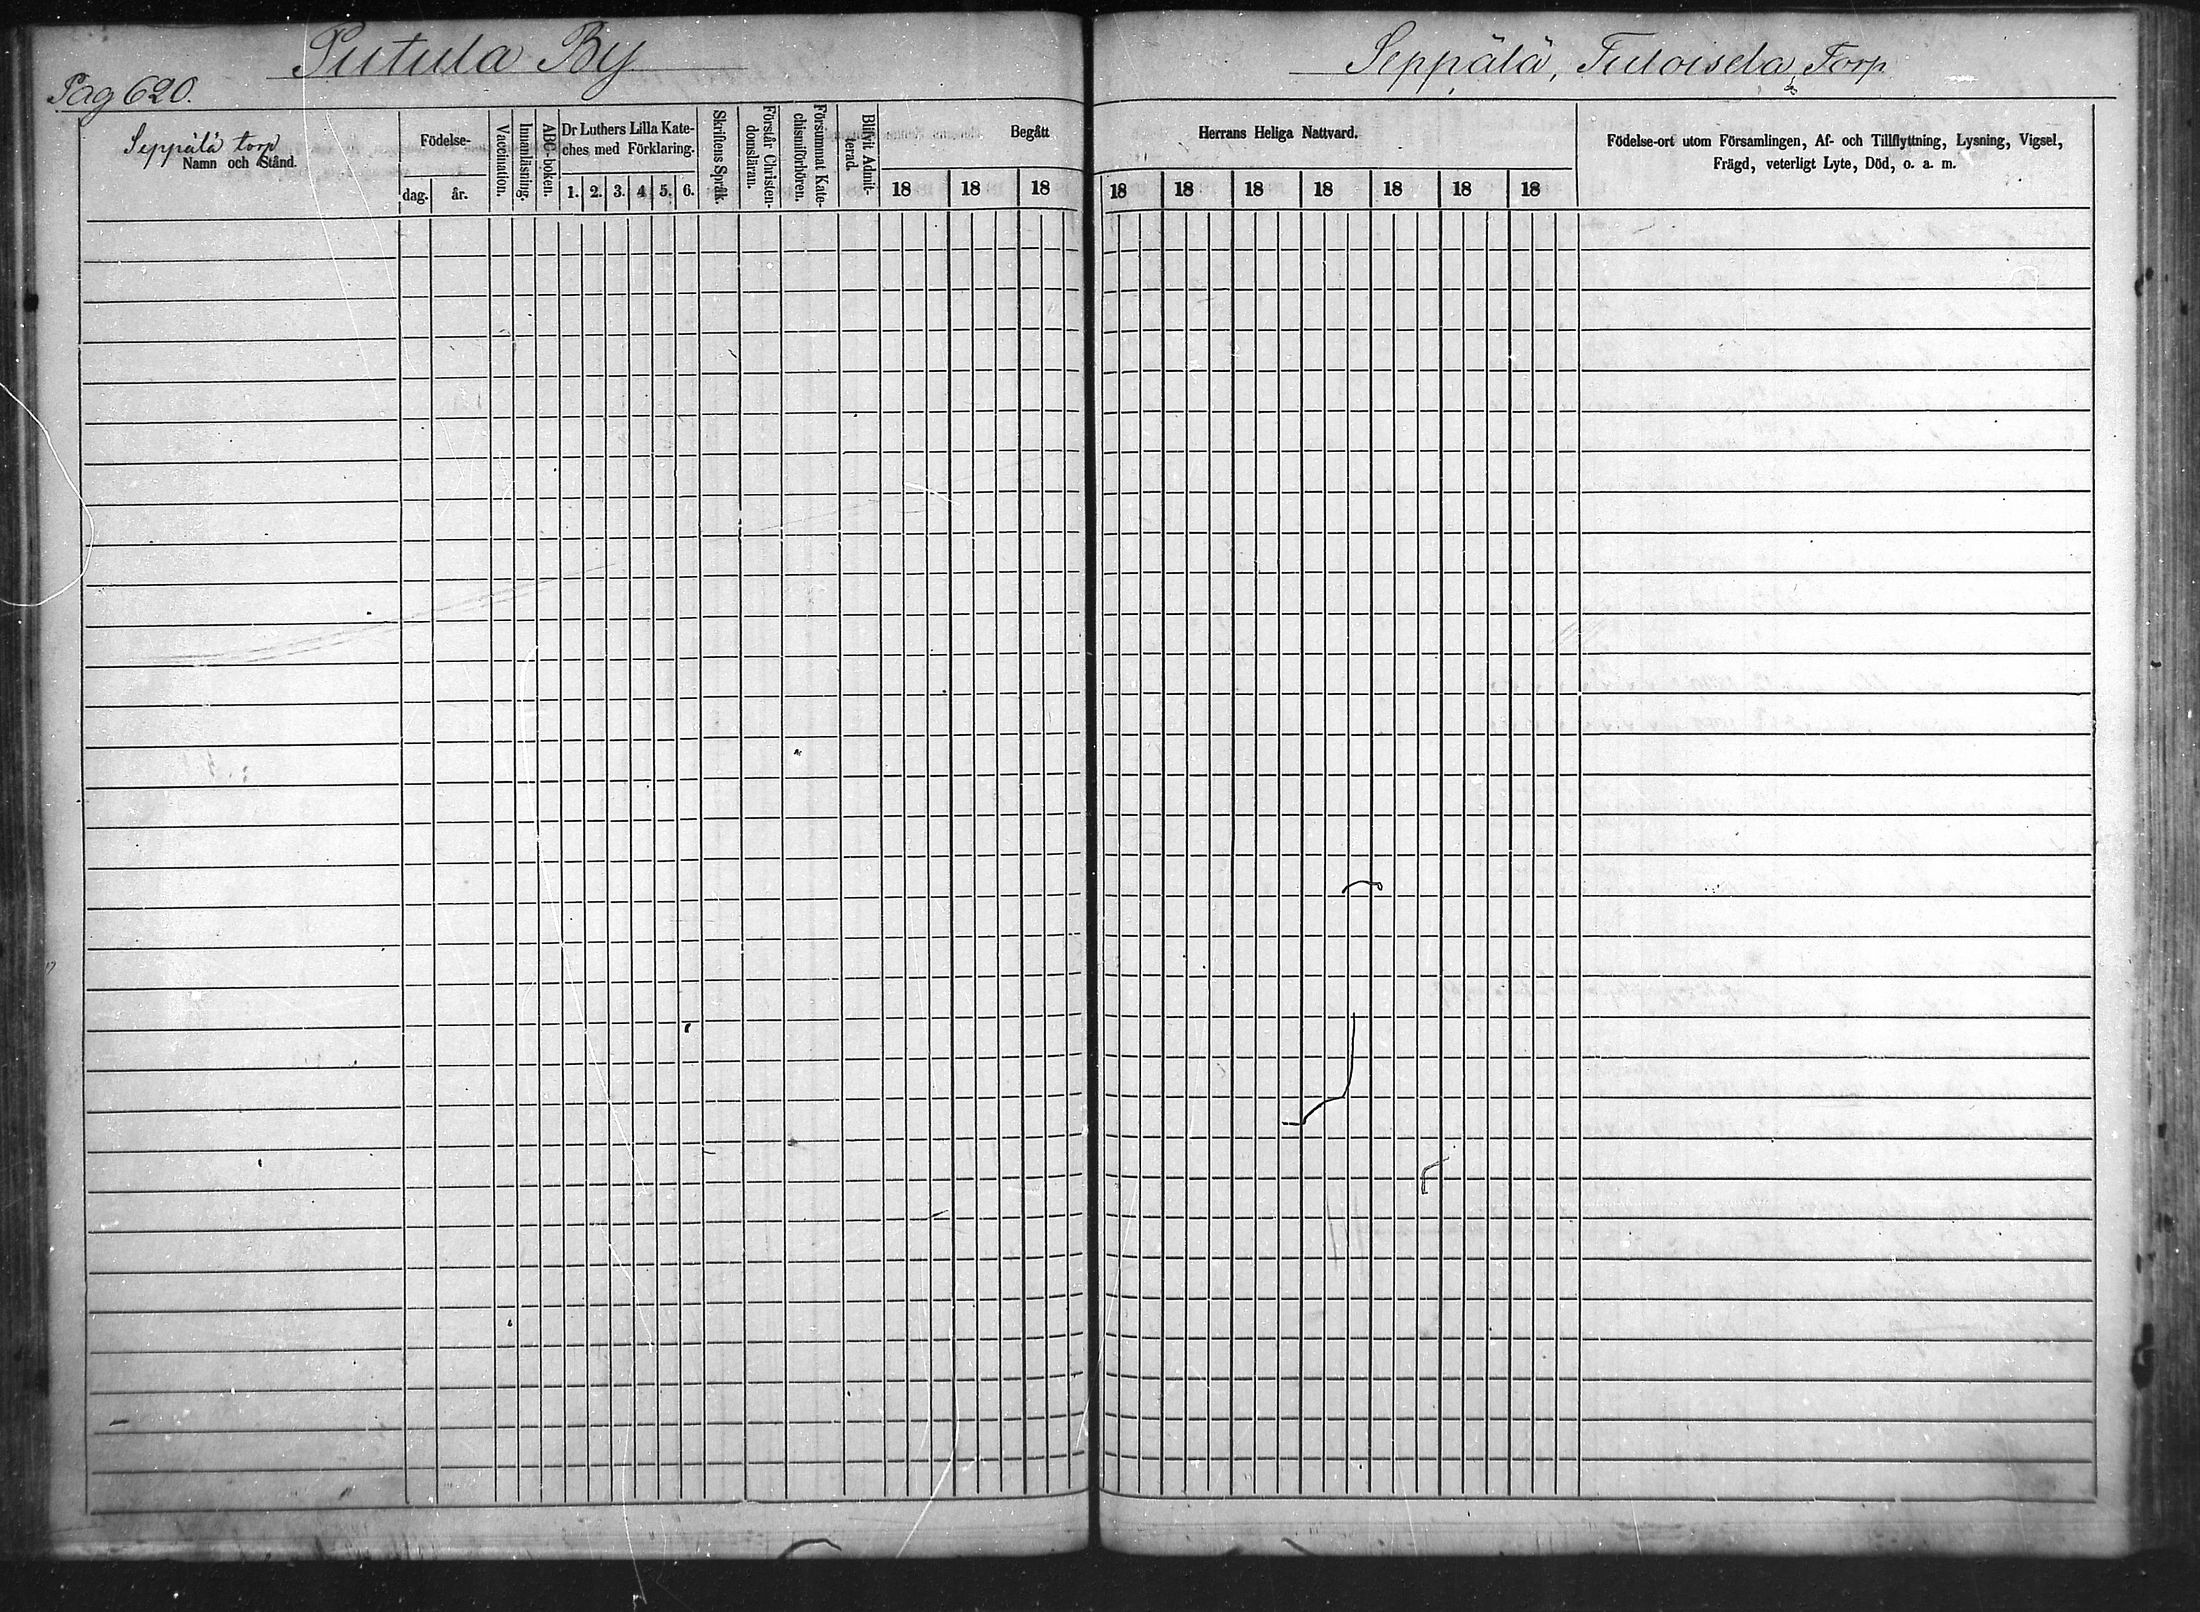 Putula By
Seppälä, Tuloisela Torp
Pag 620.
Seppälä torp
Namn och Stånd.
Födelse-
dag.
år.
Vaccination.
Innanläsning.
ABC-boken.
Dr Luthers Lilla Kate-
ches med Förklaring.
1. 2. 3. 4. 5. 6.
Skriftens Språk.
Förstår Christen-
domsläran.
Försummat Kate-
chismiförhören.
Blifvit Admit-
terad.
Begått
18 18 18
Herrans Heliga Nattvard.
18 18 18 18 18 18 18
Födelse-ort utom Församlingen, Af- och Tillflyttning, Lysning, Vigsel,
Frägd, veterligt Lyte, Död, o. a. m.